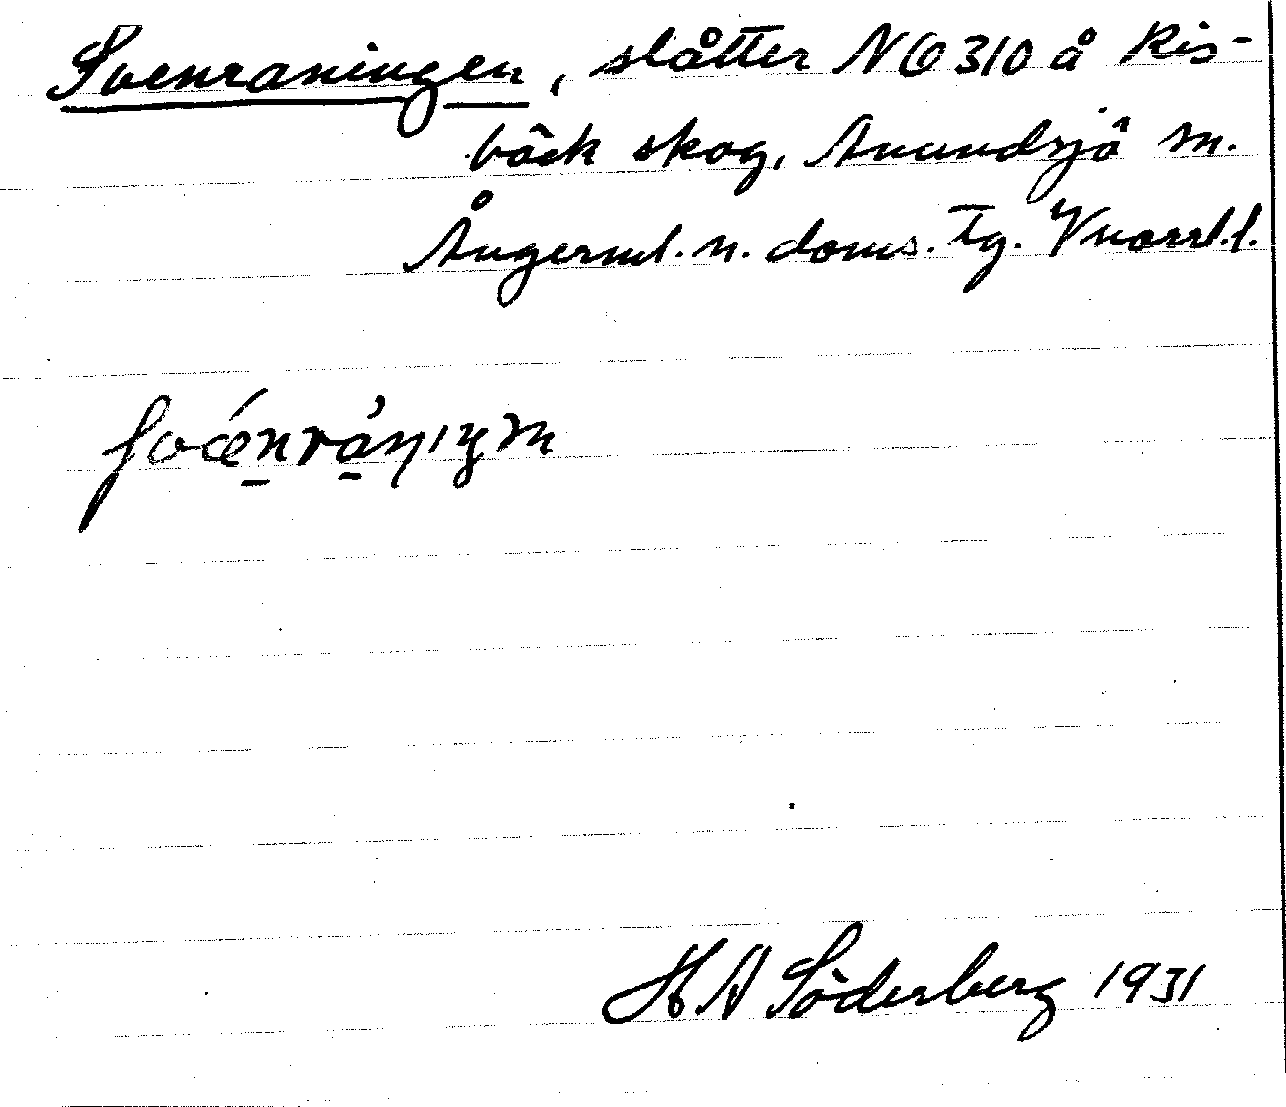 Svenraningen, slåtter NO 310 å Ris-
bäck skog, Anundsjö sn.
Ångerml. n. doms. Tg. Vnorrl. l.
H A Söderberg 1931